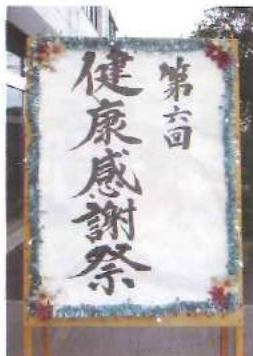 第六回
健康感謝祭